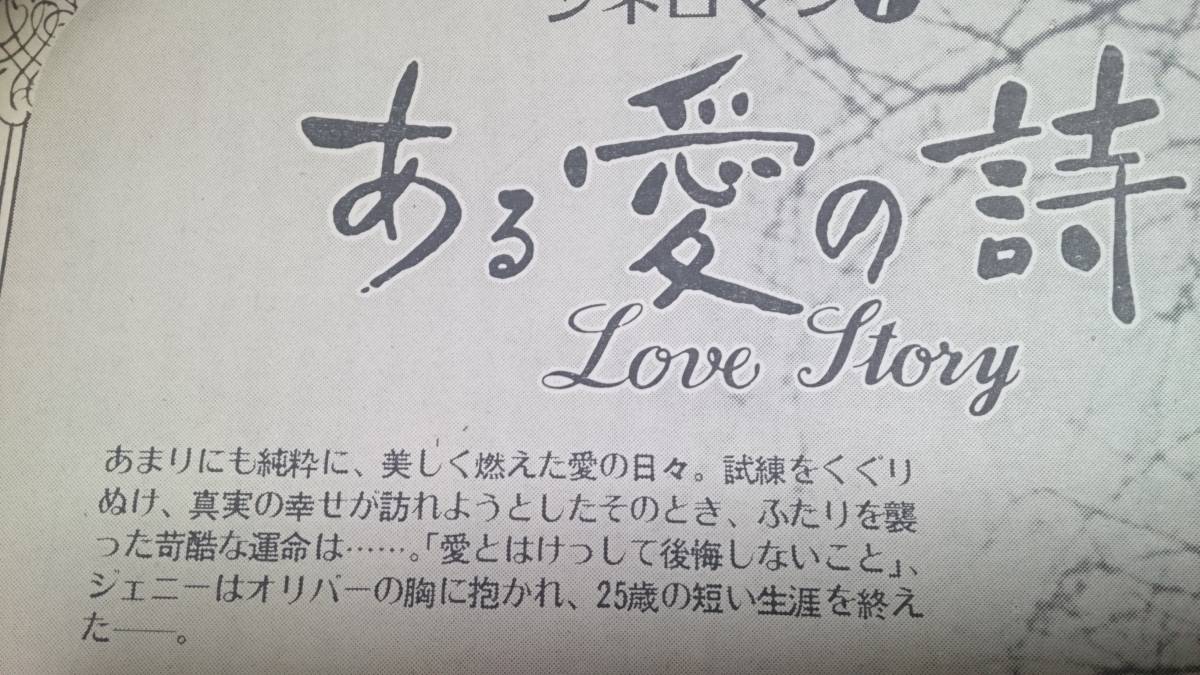 シネロマン
ある愛の詩
Love Story
あまりにも純粋に、美しく燃えた愛の日々。試練をくぐり
ぬけ、真実の幸せが訪れようとしたそのとき、ふたりを襲
った苛酷な運命は……。「愛とはけっして後悔しないこと」、
ジェニーはオリバーの胸に抱かれ、25歳の短い生涯を終え
た――。